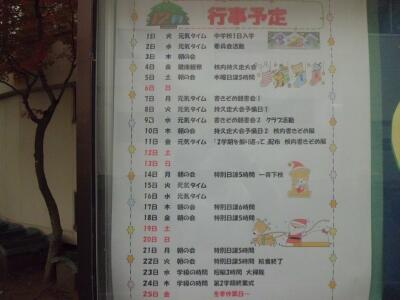 12月 行事予定
1日 火 元気タイム 中学校1日入学
2日 水 元気タイム 委員会活動
3日 木 朝の会
4日 金 健康観察 校内持久走大会
5日 土 朝の会 水曜日課5時間
6日 日
7日 月 元気タイム 書きぞめ競書会①
8日 火 元気タイム 持久走大会予備日①
9日 水 元気タイム 書きぞめ競書会② クラブ活動
10日 木 朝の会 持久走大会予備日2 校内書きぞめ展
11日 金 元気タイム 「2学期を振り返って」配布 校内書きぞめ展
12日 土
13日 日
14日 月 朝の会 特別日課5時間 一斉下校
15日 火 元気タイム
16日 水 元気タイム
17日 木 朝の会 特別日課6時間
18日 金 朝の会 特別日課5時間
19日 土
20日 日
21日 月 朝の会 特別日課5時間
22日 火 朝の会 特別日課5時間 給食終了
23日 水 学級の時間 短縮3時間 大掃除
24日 木 学級の時間 第2学期終業式
25日 金 冬季休業日